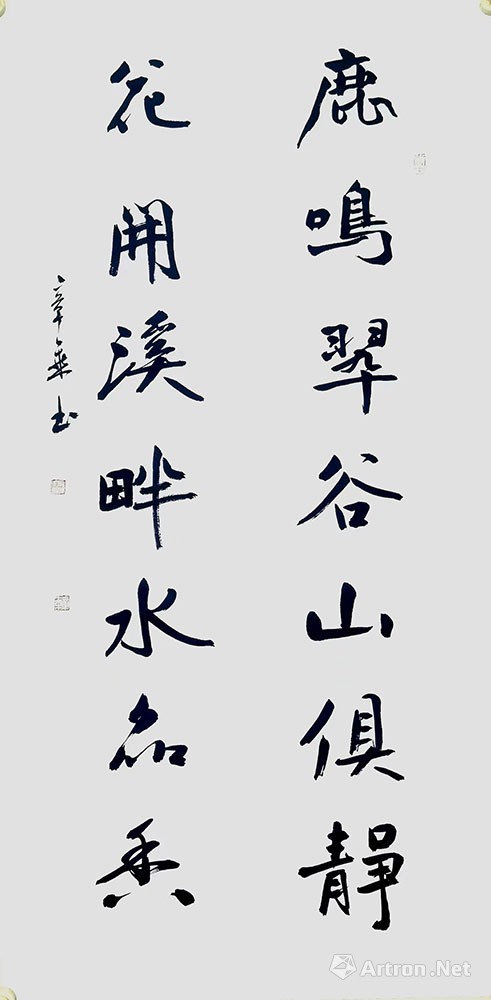 鹿鳴翠谷山俱靜
花開溪畔水品香
章書
Artron.Net